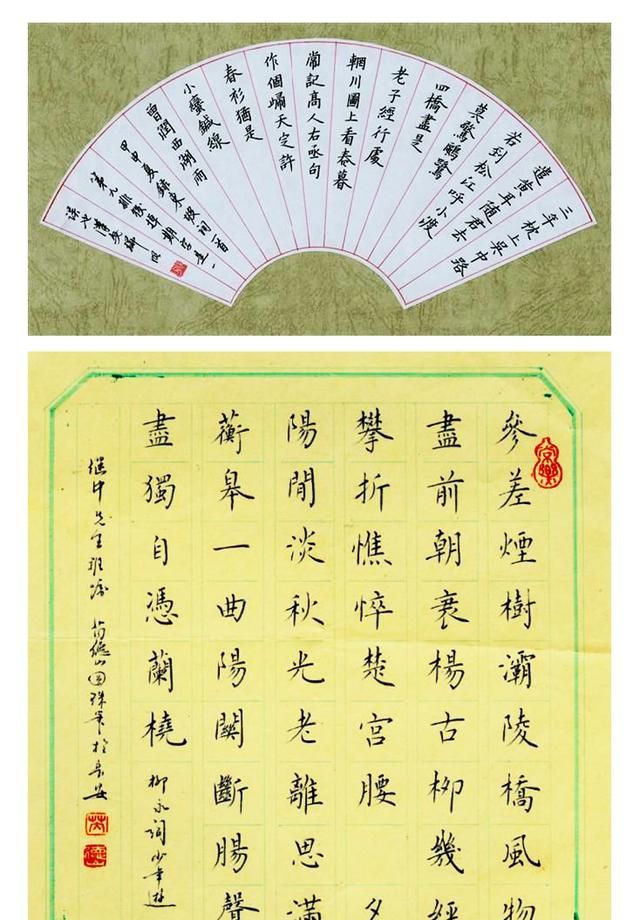 三年枕上吳中路
遣黃耳隨君去
若到松江呼小渡
莫驚鷗鷺
四橋盡是
老子經行處
輞川圖上看春暮
常記高人右丞句
作個歸天定許
春衫猶是
小蠻鍼線
曾溼西湖雨
甲申夏錄東坡詞一首
參差煙樹灞陵橋風物
盡前朝衰楊古柳幾經
攀折憔悴楚宮腰夕
陽閒淡秋光老離思滿
蘅皋一曲陽關斷腸聲
盡獨自憑蘭橈
柳永詞少年遊